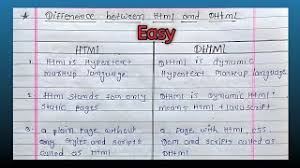 * Difference between Html and DHtml
Easy
HTMl
DHTMl
1. Html is Hypertext
markup language.
Html is Dynamic
Hypertext Markup language.
2. Html stands for only
static pages
DHtml is Dynamic Html
means Html + Javascript
3. a plain page without
any styles and scripts
called as Html
a page with Html, css,
Dom and Scripts called as
DHtml